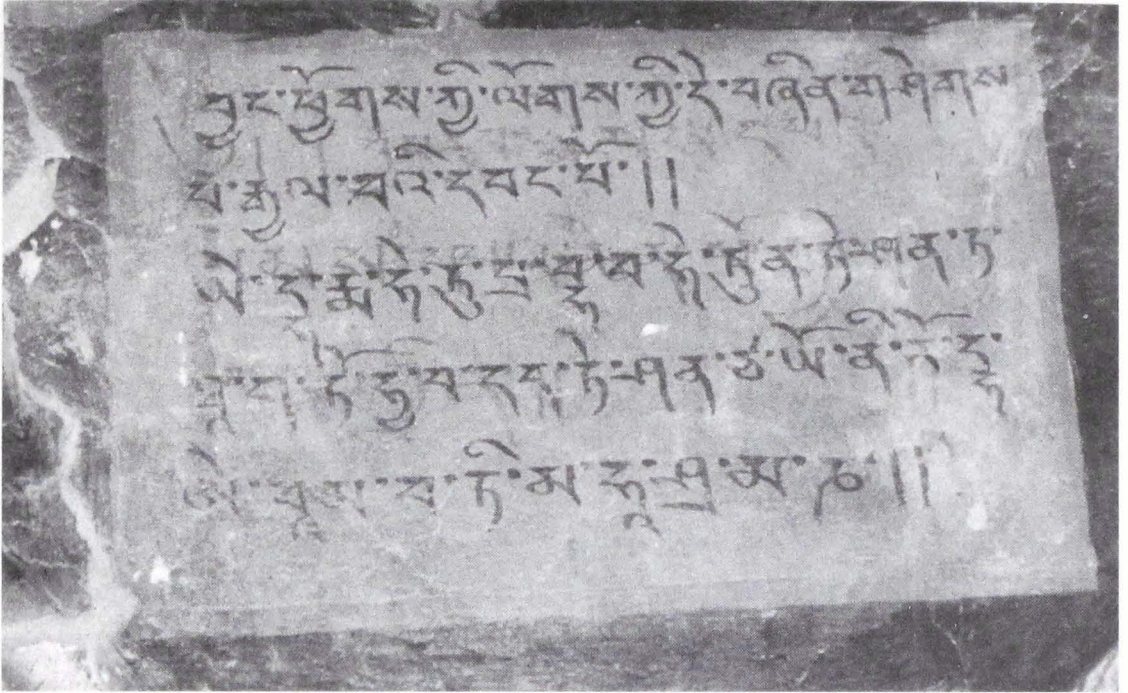 བྱང་ཕྱོགས་ཀྱི་ལོགས་ཀྱི་དེ་བཞིན་གཤེགས
པ་རྒྱལ་བའི་དབང་པོ་།།
ཡེ་ད་རྨ་ཧེ་ཏུ་པྲ་བྷ་བ་ཧེ་ཏུན་ཏེ་ཥན་ཏ་
ཐཱ་ག་ཏོ་ཧྱ་བ་དད་ཏེ་ཥན་ཙ་ཡོ་ནི་རོ་དྷ་
བ་ཏི་མ་ཧཱ་ཤྲ་མ་ཎ་།།